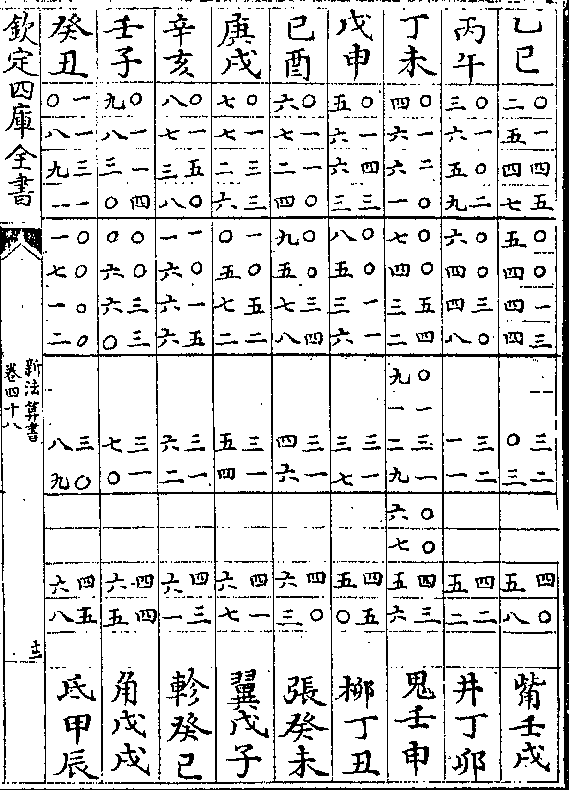 乙巳 〇二 一五 四四 五七 〇五 〇四 一四 三四 三〇 二三 四五 〇八 觜壬戌
丙午 〇三 一六 〇五 二九 〇六 〇四 三四 〇八 三一 二一 四五 二二 井丁卯
丁未 〇四 一六 二六 〇一 〇七 〇四 五三 四二 〇九 一一 三二 一九 〇六 〇七 四五 三六 鬼壬申
戊申 〇五 一六 四六 三三 〇八 〇五 一三 一六 三三 一七 四五 五〇 柳丁丑
己酉 〇六 一七 一二 〇四 〇九 〇五 三七 四八 三四 一六 四六 〇三 張癸未
庚戌 〇七 一七 三二 三六 一〇 〇五 五七 二二 三五 一四 四六 一七 翼戊子
辛亥 〇八 一七 五三 〇八 一一 〇六 一六 五六 三六 一二 四六 三一 軫癸巳
壬子 〇九 一八 一三 四〇 〇〇 〇六 三六 三〇 三七 一〇 四六 四五 角戊戌
癸丑 一〇 一八 三九 一一 〇一 〇七 〇一 〇二 三八 〇九 四六 五八 氐甲辰
欽定四庫全書
新法算書
卷四十八